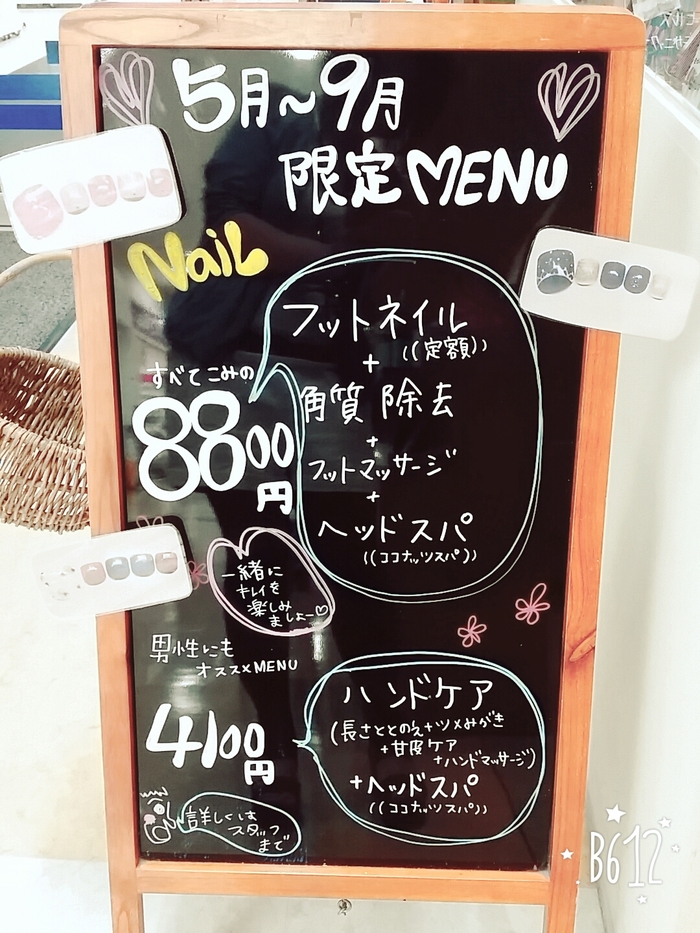 5月~9月
限定MENU
Nail
フットネイル
((定額))
+
角質除去
+
フットマッサージ
+
ヘッドスパ
((ココナッツスパ))
すべてこみの
8800円
一緒に
キレイを
楽しみ
ましょー♡
男性にも
オススメMENU
4100円
ハンドケア
(長さととのえ+ツメみがき
+甘皮ケア
+ハンドマッサージ)
+ヘッドスパ
((ココナッツスパ))
詳しくは
スタッフ
まで
B612